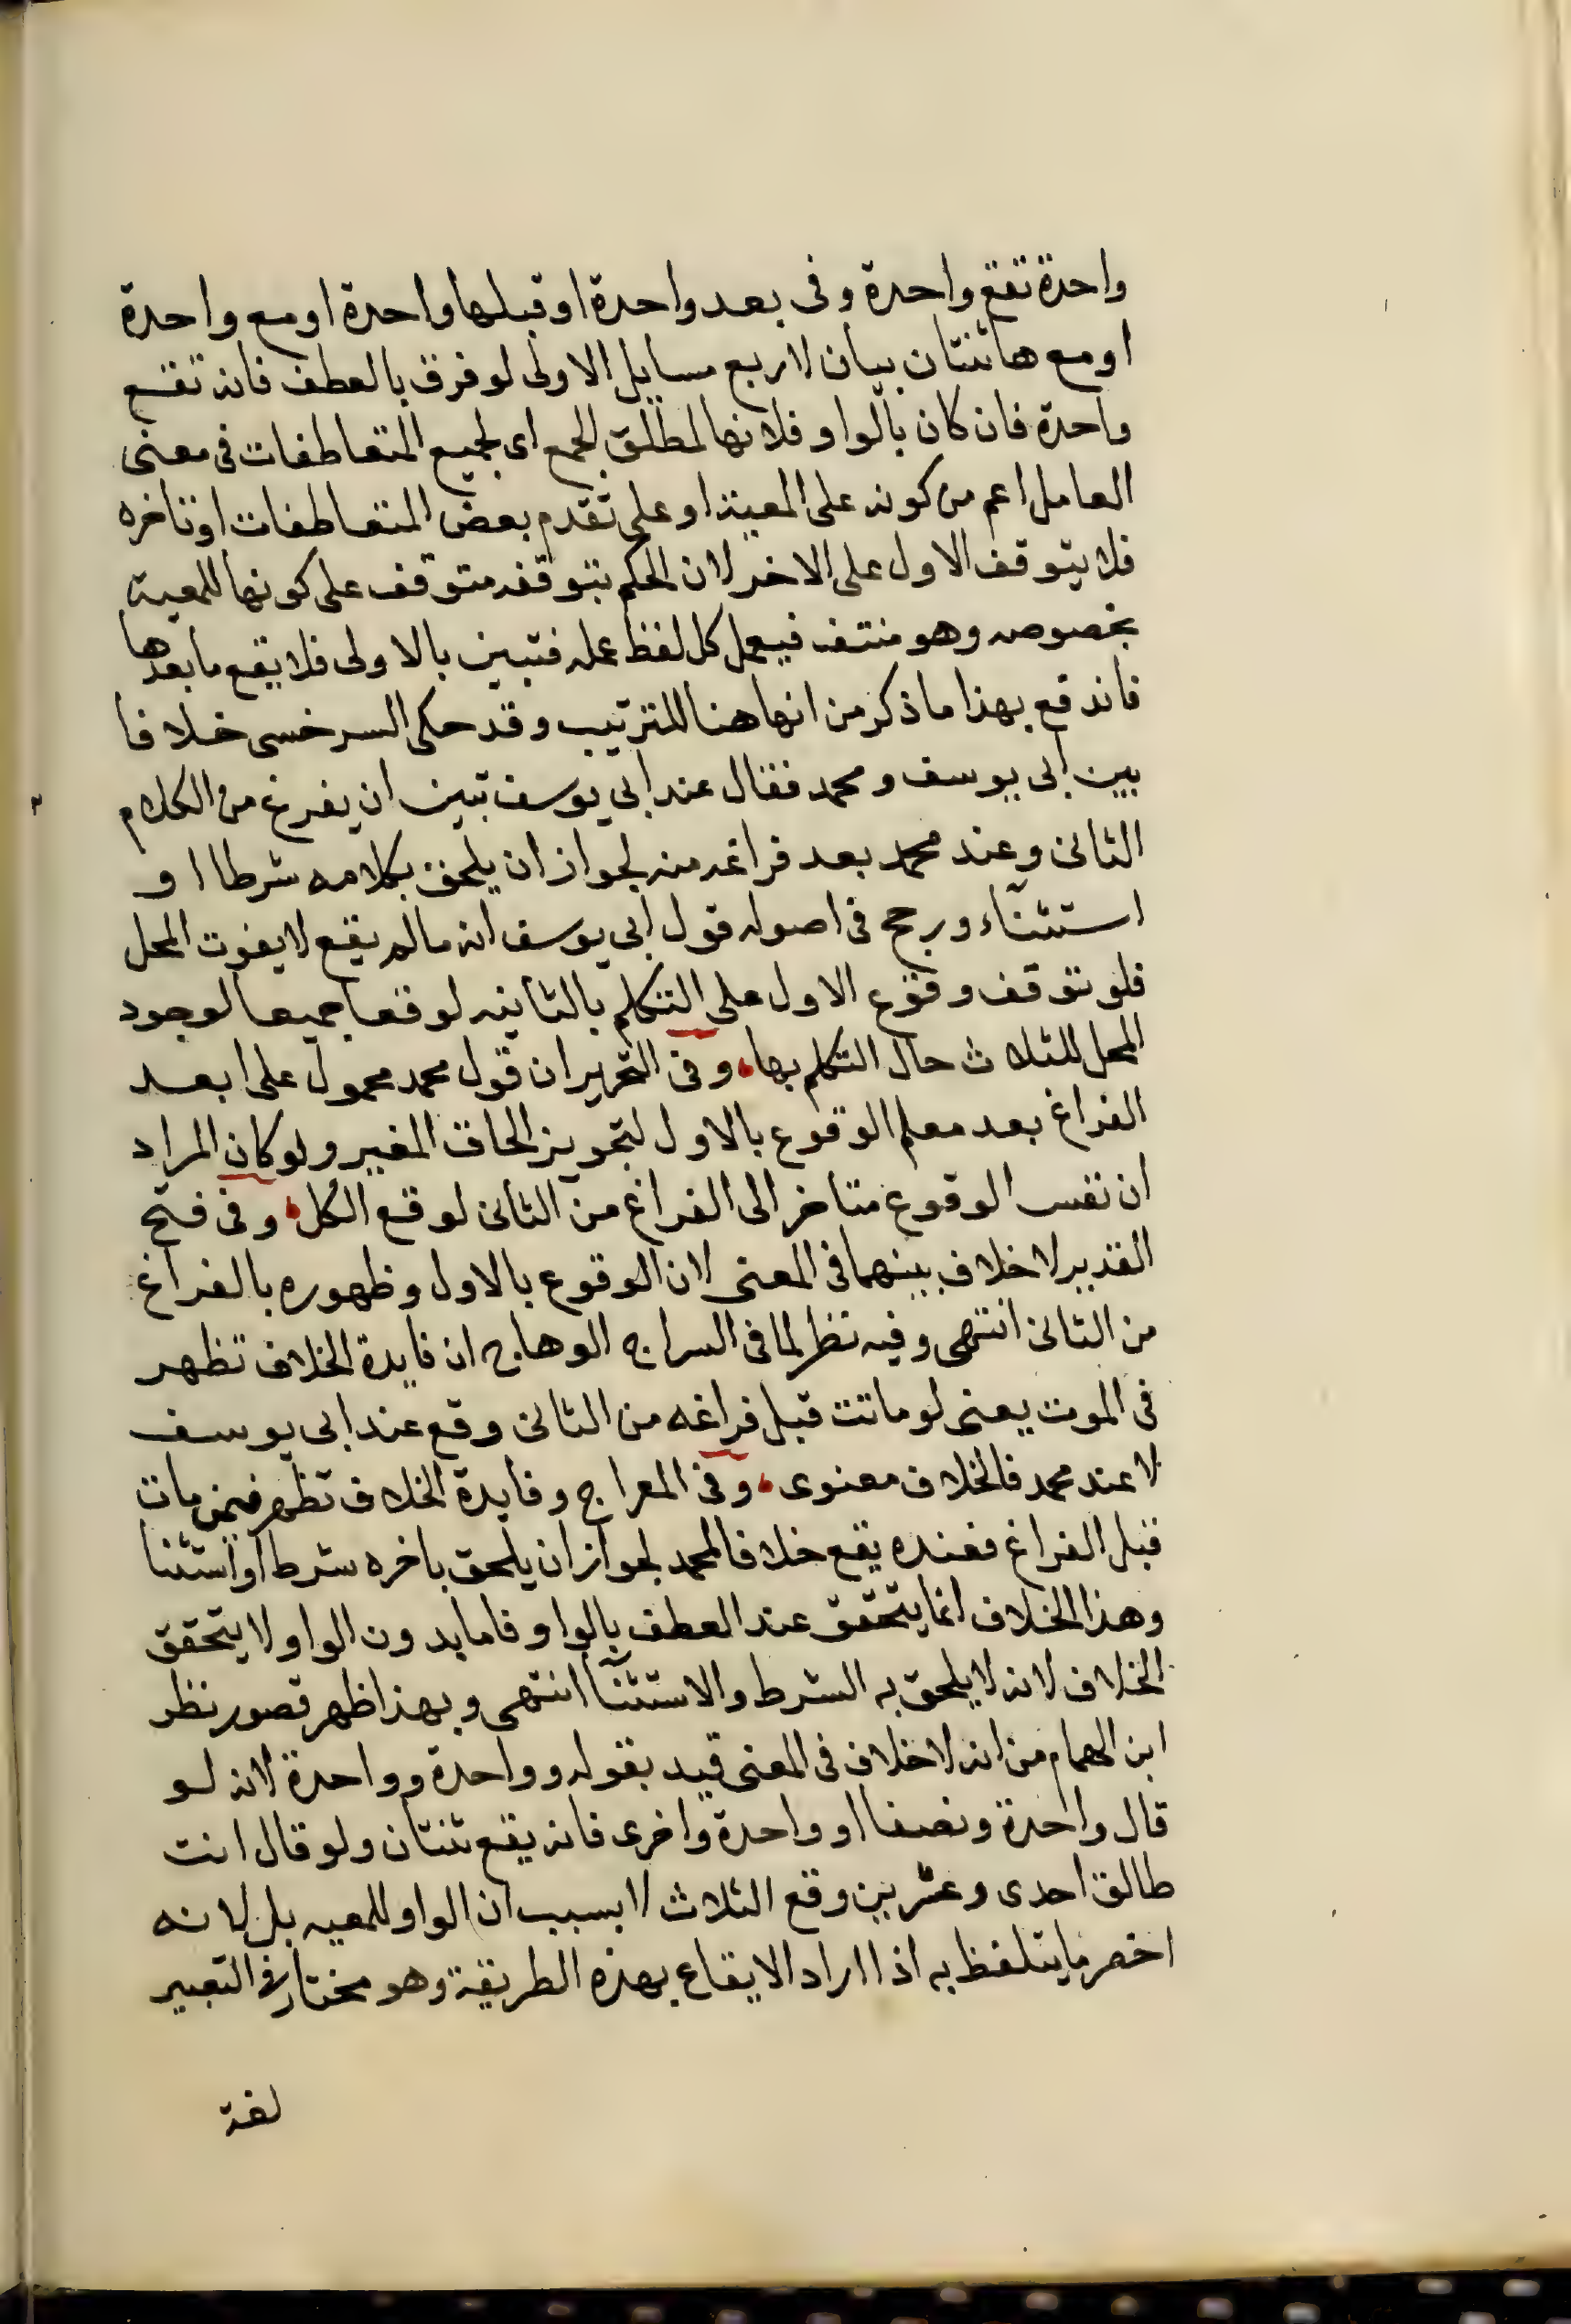 واحدة تقع واحدة وفى بعد واحدة او قبلها واحدة او مع واحدة
او معها ثنتان بيان لاربع مسايل الاولى لو فرق بالعطف فانه تقع
واحدة فان كان بالواو فلانها لمطلق الجمع اى لجميع المتعاطفات فى معنى
العامل اعم من كونه على المعية او على تقدم بعض المتعاطفات او تاخره
فلا يتوقف الاول على الاخر لان الحكم بتوقفه متوقف على كونها للمعية
بخصوصه وهو منتف فيعمل كل لفظ عمله فتبين بالاولى فلا يقع ما بعدها
فاندفع بهذا ما ذكر من انها هنا للترتيب وقد حكى السرخسى خلافا
بين ابى يوسف ومحمد فقال عند ابى يوسف تبين ان يفرغ من الكلام
الثانى وعند محمد بعد فراغه منه لجواز ان يلحق بكلامه شرطا او
استثنآء ورجح فى اصوله قول ابى يوسف انه مالم يقع لا يفوت المحل
فلو توقف وقوع الاول على التكلم بالثانيه لوقعا جميعا لوجود
المحل للثلاث حال التكلم بها، وفى التحرير ان قول محمد محمول على ابعد
الفراغ بعد معلم الوقوع بالاول لتجويز الحاق المغير ولو كان المراد
ان نفس الوقوع متاخر الى الفراغ من الثانى لوقع الكل، وفى فتح
القدير لا خلاف بينهما فى المعنى لان الوقوع بالاول وظهوره بالفراغ
من الثانى انتهى وفيه نظر لما فى السراج الوهاج ان فايدة الخلاف تظهر
فى الموت يعنى لو ماتت قبل فراغه من الثانى وقع عند ابى يوسف
لا عند محمد فالخلاف معنوى، وفى المعراج وفايدة الخلاف تظهر فيمن مات
قبل الفراغ فعنده يقع خلافا لمحمد لجواز ان يلحق باخره شرط او استثنا
وهذا الخلاف انما يتحقق عند العطف بالواو فاما بدون الواو لا يتحقق
الخلاف لانه لا يلحق به الشرط والاستثنآ انتهى وبهذا ظهر قصور نظر
ابن الهمام من انه لا خلاف فى المعنى قيد بقوله وواحدة وواحدة لانه لو
قال واحدة ونصفا او واحدة واخرى فانه يقع ثنتان ولو قال انت
طالق احدى وعشرين وقع الثلاث لا بسبب ان الواو للمعيه بل لانه
اخصر ما يتلفظ به اذا اراد الايقاع بهذه الطريقة وهو مختار فى التعبير
لغة